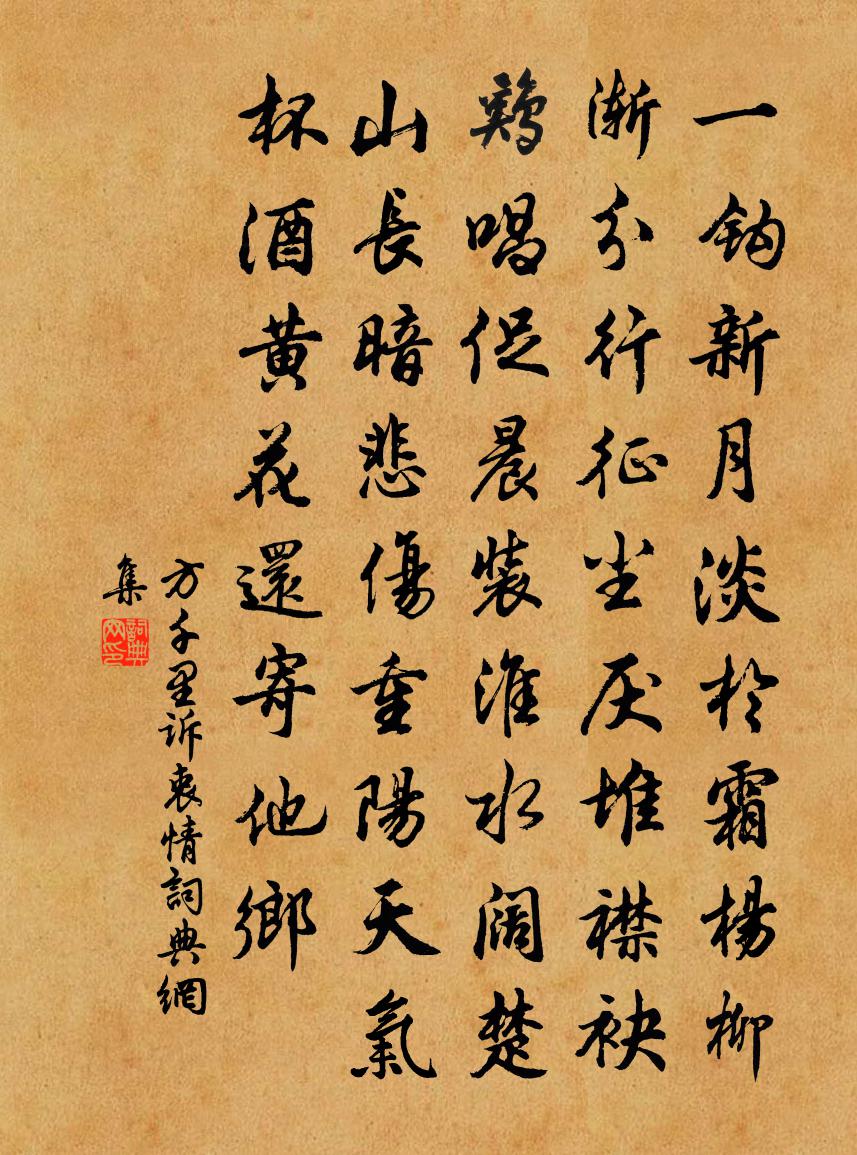 一鈎新月淡於霜楊柳
漸分行征尘厌堆襟袂
鷄唱促晨裝淮水阔楚
山長暗悲傷重陽天氣
杯酒黄花還寄他鄉
方千里訴衷情詞典網
集
詞典網印